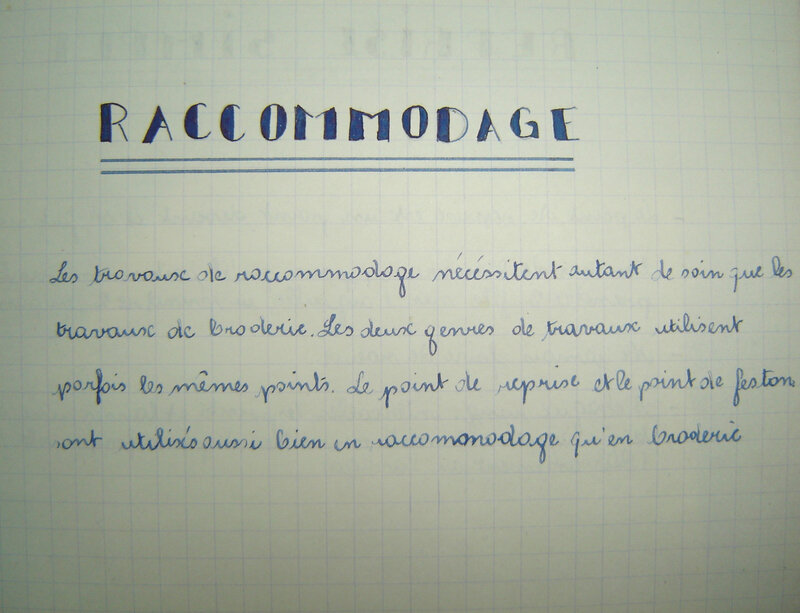 RACCOMMODAGE
Les travaux de raccommodage nécéssitent autant de soin que les
travaux de broderie. Les deux genres de travaux utilisent
parfois les mêmes points. Le point de reprise et le point de feston
sont utilisés aussi bien en raccommodage qu'en broderie